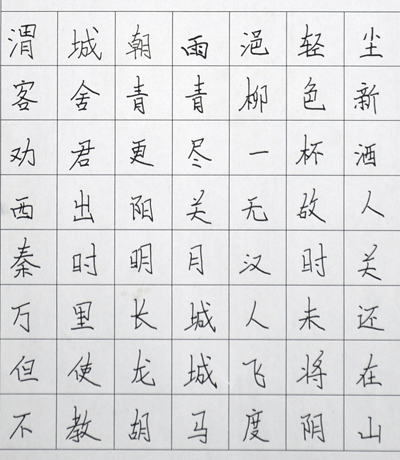 渭城朝雨浥轻尘
客舍青青柳色新
劝君更尽一杯酒
西出阳关无故人
秦时明月汉时关
万里长城人未还
但使龙城飞将在
不教胡马度阴山